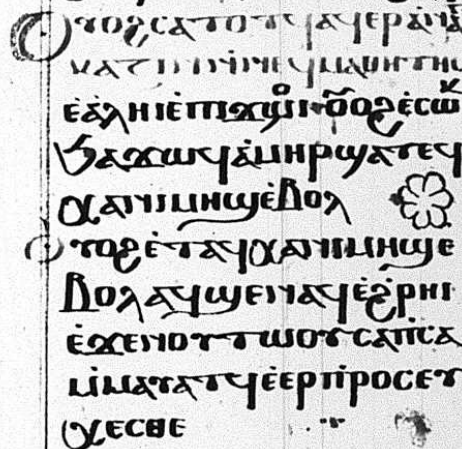 ⲟⲩⲟϩⲥⲁⲧⲟⲧϥⲁϥⲉⲣⲁⲛⲁ
ⲕⲁⲍⲓⲛⲛ̀ⲛⲉϥⲙⲁⲑⲏⲧⲏⲥ
ⲉ̀ⲁ̀ⲗⲏⲓⲉ̀ⲡϫⲟⲓ·ⲟⲩⲟϩⲉ̀ⲥⲱⲕ
ϧⲁϫⲱϥⲁ̀ⲙⲏⲣϣⲁⲧⲉϥ
ⲭⲁⲛⲓⲙⲏϣⲉ̀ⲃⲟⲗ
ⲟⲩⲟϩⲉ̀ⲧⲁϥⲭⲁⲛⲓⲙⲏϣⲉ̀
ⲃⲟⲗⲁϥϣⲉⲛⲁϥⲉ̀ϩ̀ⲣⲏⲓ
ⲉ̀ϫⲉⲛⲟⲩⲧⲱⲟⲩⲥⲁⲡ̀ⲥⲁ
ⲙ̀ⲙⲁⲩⲁⲧϥⲉ̀ⲉⲣⲡ̀ⲣⲟⲥⲉⲩ
ⲭⲉⲥⲑⲉ